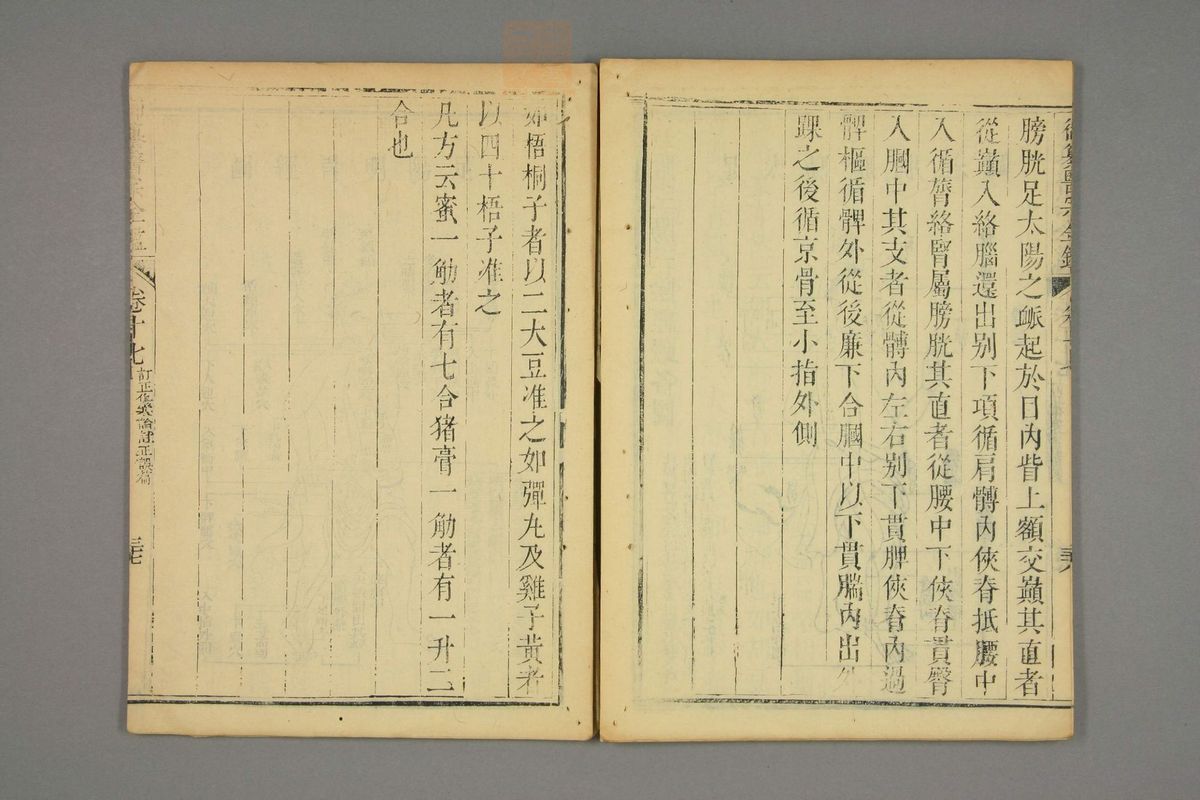 膀胱足太陽之脈起於目內眥上額交巔其直者
從巔入絡腦還出別下項循肩髆內俠脊抵腰中
入循膂絡腎屬膀胱其直者從腰中下俠脊貫臀
入膕中其支者從髆內左右別下貫胛俠脊內過
髀樞循髀外從後廉下合膕中以下貫腨內出外
踝之後循京骨至小指外側
如梧桐子者以二大豆准之如彈丸及雞子黃者
以四十梧子准之
凡方云蜜一觔者有七合猪膏一觔者有一升二
合也
卷十七
訂正傷寒論註正誤篇